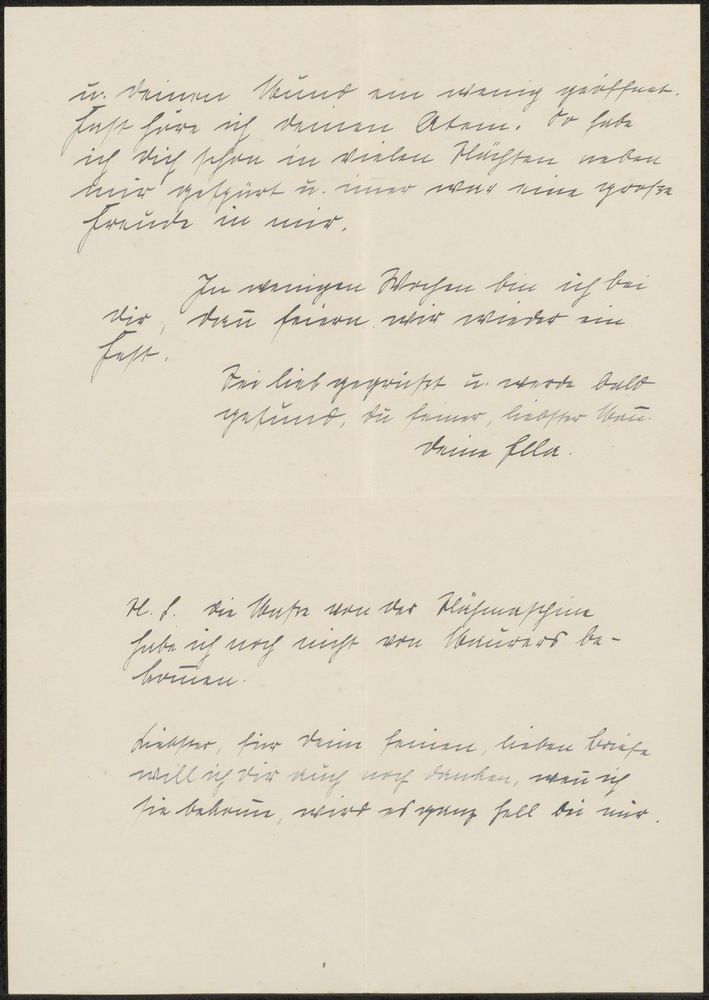 u. deinen Mund ein wenig geöffnet.
Fast höre ich deinen Atem. So habe
ich dich schon in vielen Nächten neben
mir gespürt u. im̅er war eine große
Freude in mir.
In wenigen Wochen bin ich bei
dir, dan̅ feiern wir wieder ein
Fest.
Sei lieb gegrüsst u. werde bald
gesund, du feiner, liebster Man̅.
Deine Ella.
N. S. Die Masse von der Nähmaschine
habe ich noch nicht von Maurers be-
kom̅en.
Liebster, für deine feinen, lieben Briefe
will ich dir auch noch danken, wen̅ ich
sie bekom̅e, wird es ganz hell bei mir.